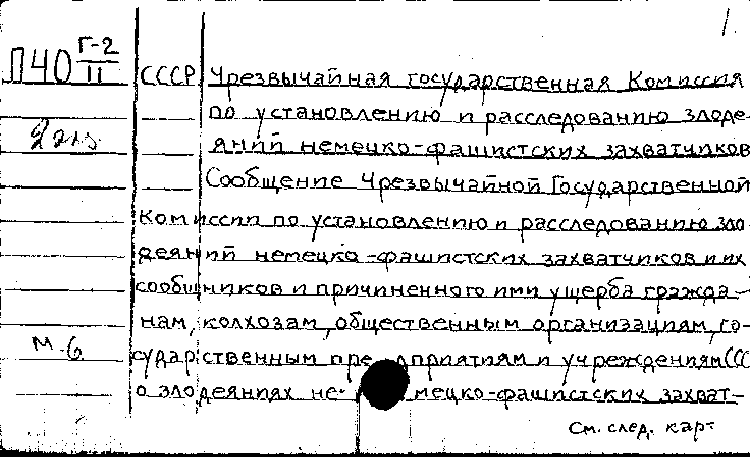 1.
Л40 Г-2
II
СССР Чрезвычайная государственная Комиссия
по установлению и расследованию злоде-
яний немецко-фашистских захватчиков
Сообщение Чрезвычайной Государственной
Комиссии по установлению и расследованию зло-
деяний немецко-фашистских захватчиков и их
сообщников и причиненного ими ущерба гражда-
нам, колхозам, общественным организациям, го-
сударственным предприятиям и учреждениям СССР
о злодеяниях немецко-фашистских захват-
2 экз
М. б
См. след. карт